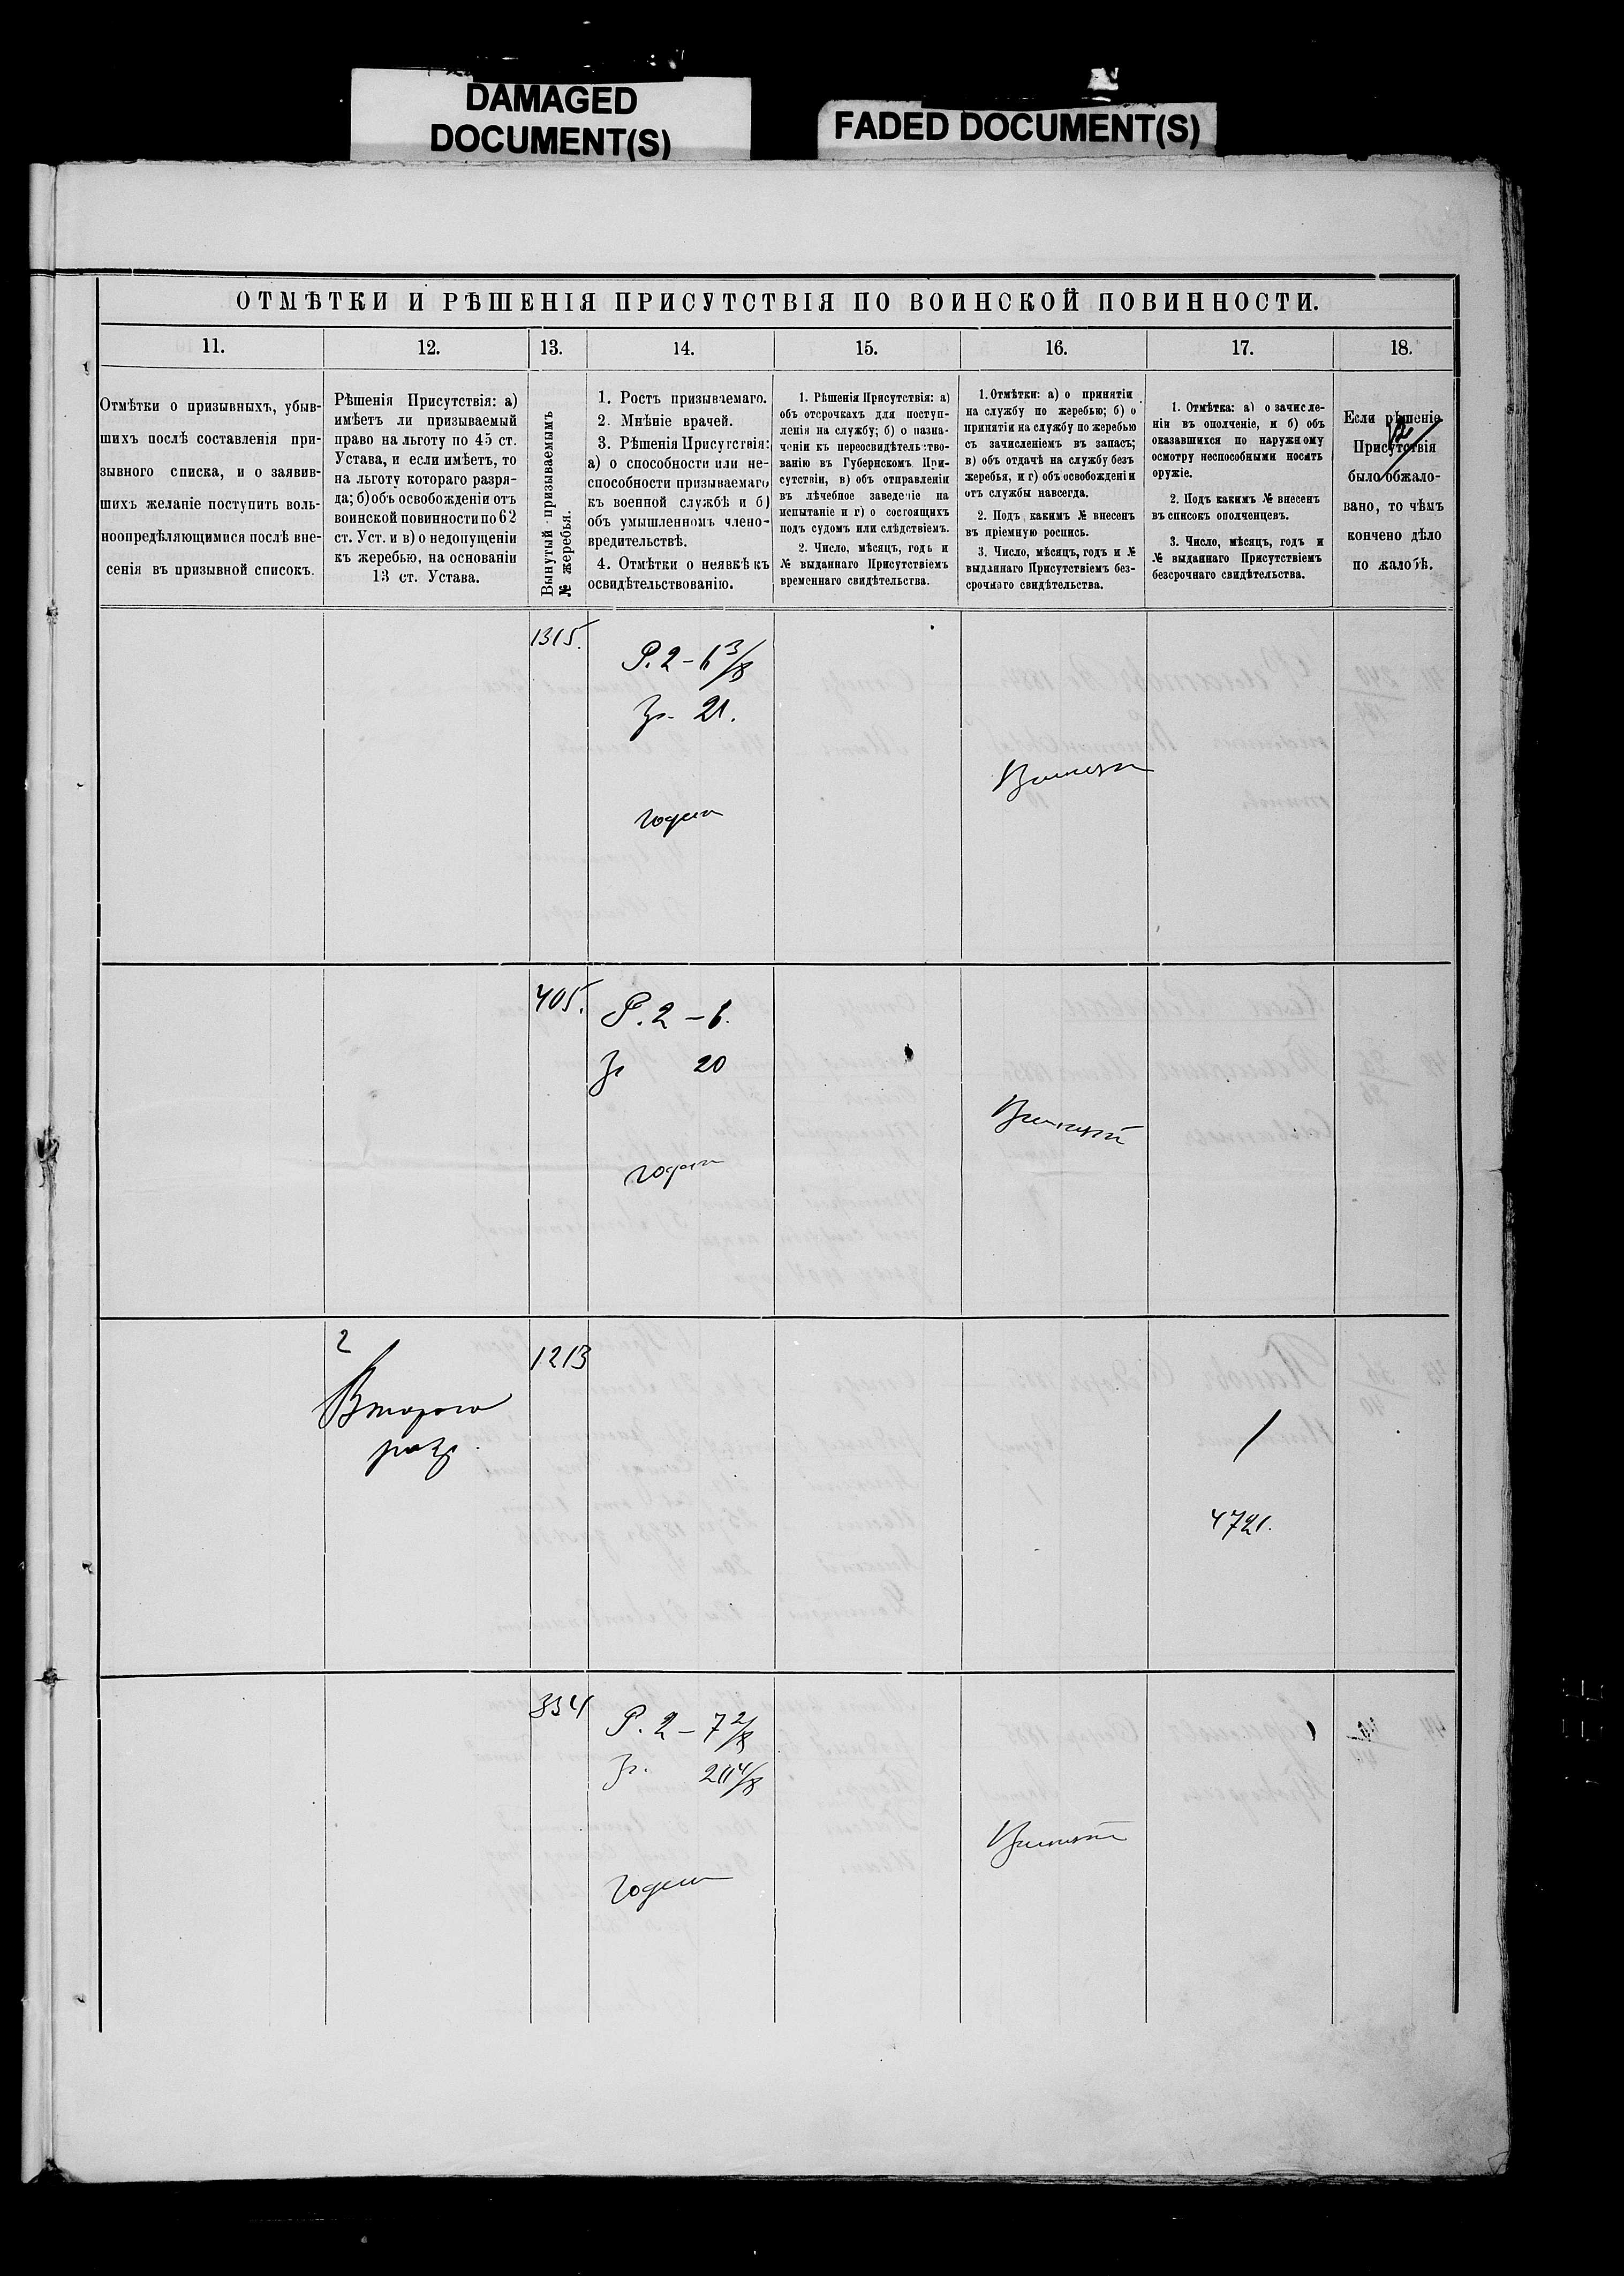 DAMAGED
DOCUMENT(S)
FADED DOCUMENT(S)
ОТМѢТКИ И РѢШЕНІЯ ПРИСУТСТВІЯ ПО ВОИНСКОЙ ПОВИННОСТИ.
11.
12.
13.
14.
15.
16.
17.
18.
Отмѣтки о призывныхъ, убыв-
шихъ послѣ составленія при-
зывного списка, и о заявив-
шихъ желаніе поступить воль-
ноопредѣляющимися послѣ вне-
сенія въ призывной списокъ.
Рѣшенія Присутствія: а)
имѣетъ ли призываемый
право на льготу по 45 ст.
Устава, и если имѣетъ, то
на льготу котораго разря-
да; б) объ освобожденіи отъ
воинской повинности по 62
ст. Уст. и в) о недопущеніи
къ жеребью, на основаніи
13 ст. Устава.
Вынутый призываемымъ
№ жеребья.
1. Ростъ призываемаго.
2. Мнѣніе врачей.
3. Рѣшенія Присутствія:
а) о способности или не-
способности призываемаго
къ военной службѣ и б)
объ умышленномъ члено-
вредительствѣ.
4. Отмѣтки о неявкѣ къ
освидѣтельствованію.
1. Рѣшенія Присутствія: а)
объ отсрочкахъ для поступ-
ленія на службу; б) о назна-
ченіи къ переосвидѣтельство-
ванію въ Губернскомъ При-
сутствіи, в) объ отправленіи
въ лѣчебное заведеніе на
испытаніе и г) о состоящихъ
подъ судомъ или слѣдствіемъ.
2. Число, мѣсяцъ, годъ и
№ выданнаго Присутствіемъ
временнаго свидѣтельства.
1. Отмѣтки: а) о принятіи
на службу по жеребью; б) о
принятіи на службу по жеребью
съ зачисленіемъ въ запасъ;
в) объ отдачѣ на службу безъ
жеребья, и г) объ освобожденіи
отъ службы навсегда.
2. Подъ какимъ № внесенъ
въ пріемную роспись.
3. Число, мѣсяцъ, годъ и №
выданнаго Присутствіемъ без-
срочнаго свидѣтельства.
1. Отмѣтка: а) о зачисле-
ніи въ ополченіе, и б) объ
оказавшихся по наружному
осмотру неспособными носить
оружіе.
2. Подъ какимъ № внесенъ
въ списокъ ополченцевъ.
3. Число, мѣсяцъ, годъ и
№ выданнаго Присутствіемъ
безсрочнаго свидѣтельства.
Если рѣшеніе
Присутствія
было обжало-
вано, то чѣмъ
кончено дѣло
по жалобѣ.
1315.
Р. 2 – 6 3/8
Гр. 21.
годен
405.
Р. 2 – 6.
Гр 20
годен
2
Второго
разр.
1213
/
4721.
334
Р. 2 – 7 2/8
Гр. 20 4/8
годен